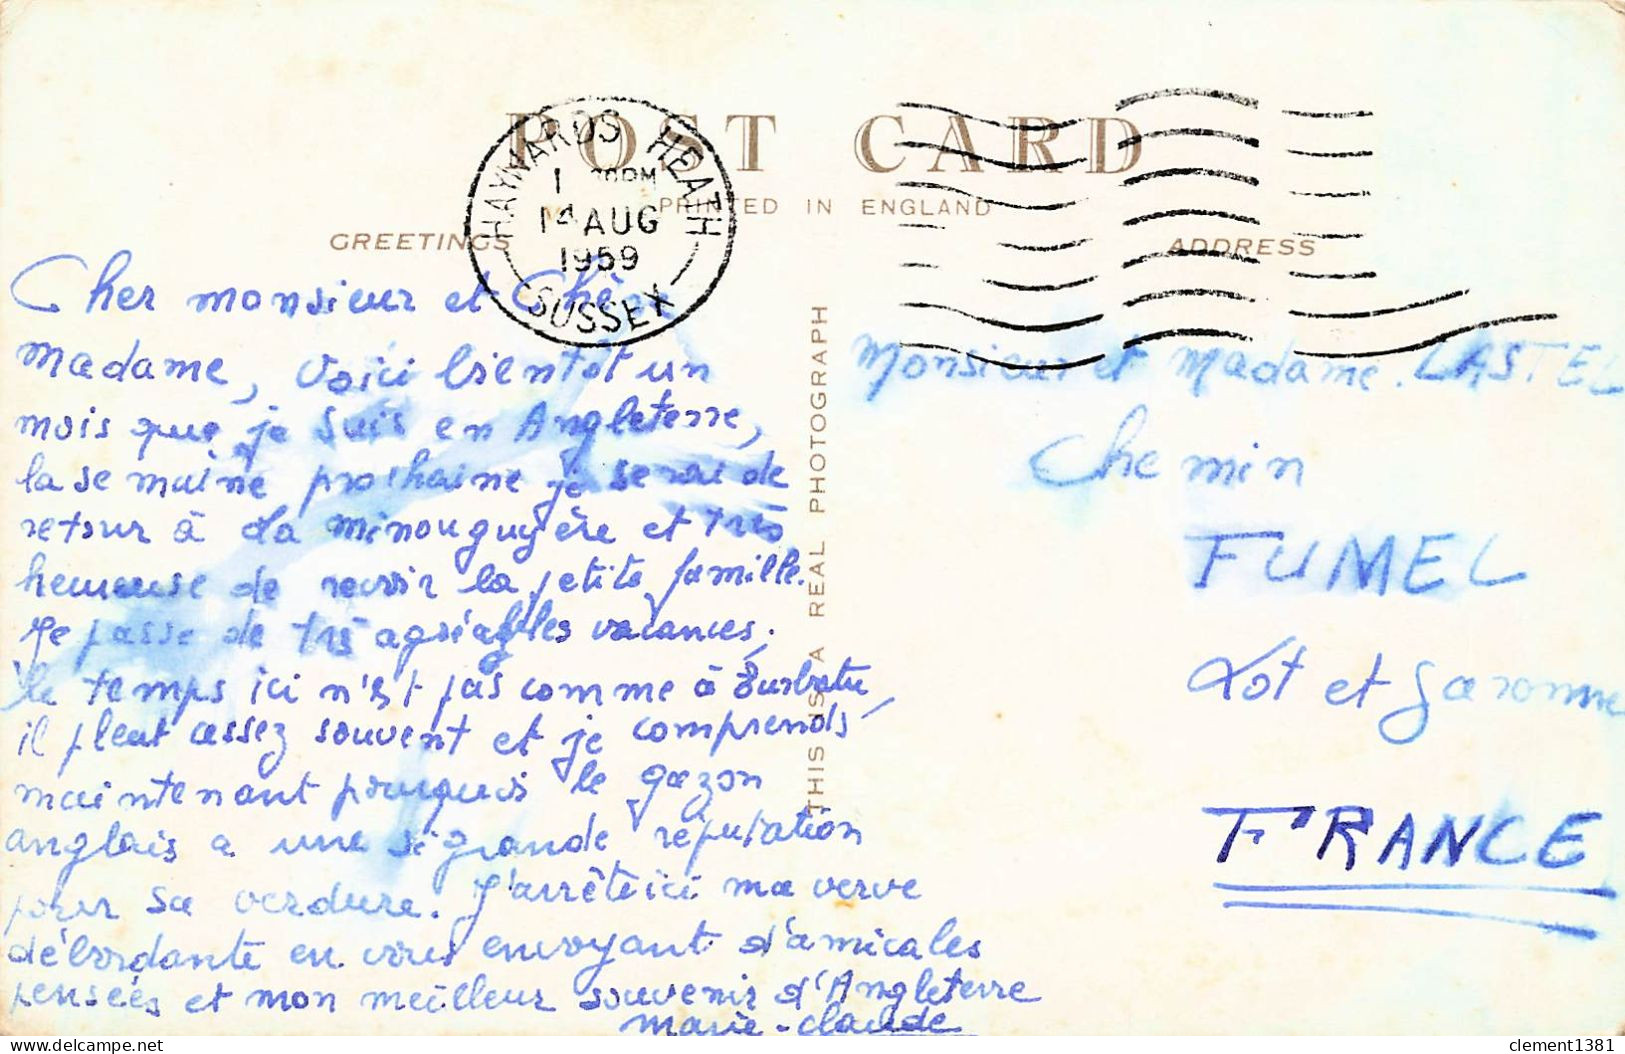 POST CARD
PRINTED IN ENGLAND
GREETINGS
ADDRESS
HAYWARDS HEATH
14 AUG
1959
SUSSEX
Cher monsieur et Chère
madame, voici bientôt un
mois que je suis en Angleterre,
la semaine prochaine je serai de
retour à La minouguyère et très
heureuse de revoir la petite famille.
Je passe de très agréables vacances,
le temps ici n'est pas comme à
il pleut assez souvent et je comprends
maintenant pourquoi le gazon
anglais a une si grande réputation
pour sa verdure. J'arrête ici ma verve
débordante en vous envoyant d'amicales
pensées et mon meilleur souvenir d'Angleterre
marie-claude
THIS IS A REAL PHOTOGRAPH
Monsieur et Madame. LASTEL
Chemin
FUMEL
Lot et Garonne
FRANCE
delcampe.net
clement1381